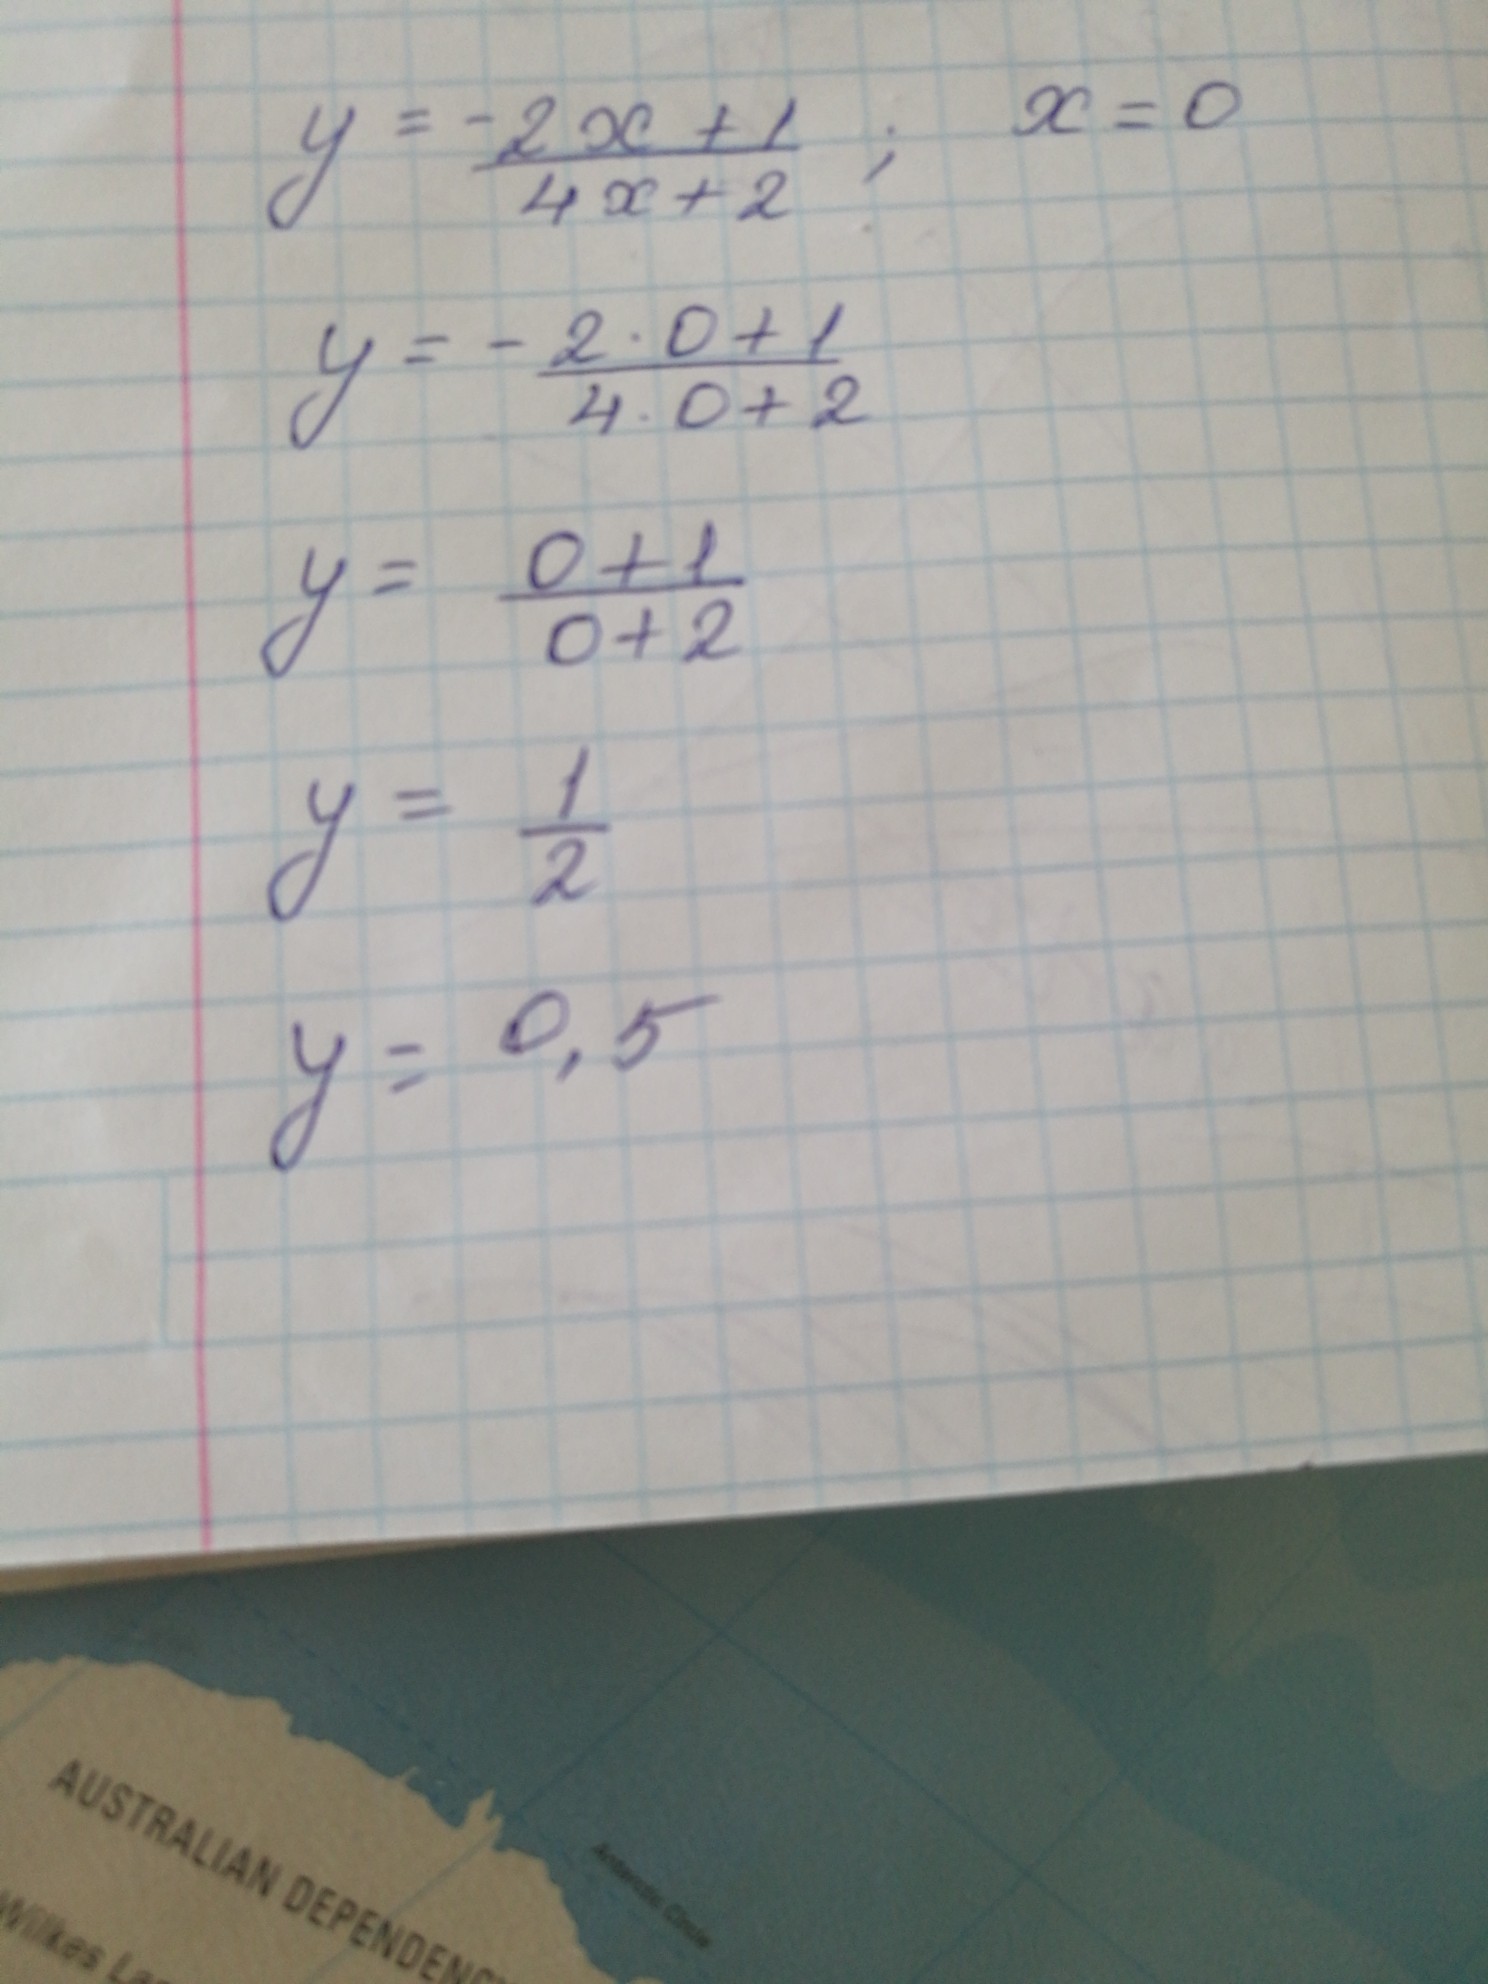 y = -2x+1 / 4x+2 ; x = 0
y = - 2·0+1 / 4·0+2
y = 0+1 / 0+2
y = 1/2
y = 0,5
AUSTRALIAN DEPENDENC
Wilkes Lan